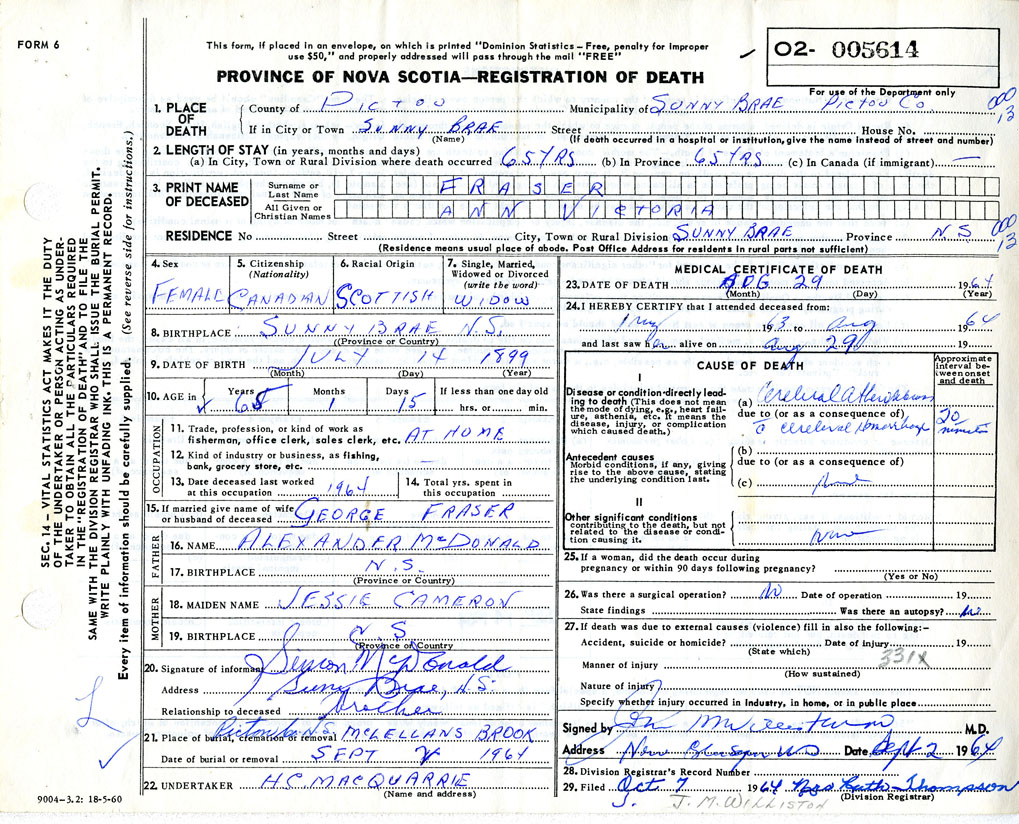 FORM 6
This form, if placed in an envelope, on which is printed "Dominion Statistics – Free, penalty for improper
use $50," and properly addressed will pass through the mail "FREE"
PROVINCE OF NOVA SCOTIA—REGISTRATION OF DEATH
02- 005614
For use of the Department only
1. PLACE OF DEATH
County of PICTOU Municipality of SUNNY BRAE PICTOU CO
000 13
If in City or Town SUNNY BRAE Street House No.
(Name) (If death occurred in a hospital or institution, give the name instead of street and number)
2. LENGTH OF STAY (in years, months and days)
(a) In City, Town or Rural Division where death occurred 65 YRS (b) In Province 65 YRS (c) In Canada (if immigrant) —
3. PRINT NAME OF DECEASED
Surname or Last Name FRASER
All Given or Christian Names ANN VICTORIA
RESIDENCE No Street City, Town or Rural Division SUNNY BRAE Province N S
000 13
(Residence means usual place of abode. Post Office Address for residents in rural parts not sufficient)
4. Sex FEMALE
5. Citizenship (Nationality) CANADIAN
6. Racial Origin SCOTTISH
7. Single, Married, Widowed or Divorced (write the word) WIDOW
8. BIRTHPLACE SUNNY BRAE N.S.
(Province or Country)
9. DATE OF BIRTH JULY 14 1899
(Month) (Day) (Year)
10. AGE in Years 65 Months 1 Days 15 If less than one day old hrs. or min.
OCCUPATION
11. Trade, profession, or kind of work as
fisherman, office clerk, sales clerk, etc. AT HOME
12. Kind of industry or business, as fishing,
bank, grocery store, etc. —
13. Date deceased last worked
at this occupation 1964
14. Total yrs. spent in
this occupation
15. If married give name of wife
or husband of deceased GEORGE FRASER
FATHER
16. NAME ALEXANDER McDONALD
17. BIRTHPLACE N.S.
(Province or Country)
MOTHER
18. MAIDEN NAME JESSIE CAMERON
19. BIRTHPLACE N.S
(Province or Country)
20. Signature of informant McDonald
Address Sunny Brae, N.S.
Relationship to deceased Brother
21. Place of burial, cremation or removal McLELLANS BROOK
Date of burial or removal SEPT 1964
22. UNDERTAKER H.C. MACQUARRIE
(Name and address)
9004-3.2: 18-5-60
MEDICAL CERTIFICATE OF DEATH
23. DATE OF DEATH AUG 29 1964
(Month) (Day) (Year)
24. I HEREBY CERTIFY that I attended deceased from:
1963 to Aug 1964
and last saw her alive on Aug 29 19
CAUSE OF DEATH
Approximate interval between onset and death
I
Disease or condition directly leading to death (This does not mean the mode of dying, e.g., heart failure, asthenia, etc. It means the disease, injury, or complication which caused death.)
(a) Cerebral
due to (or as a consequence of)
Cerebral Hemorrhage 20 minutes
Antecedent causes
Morbid conditions, if any, giving rise to the above cause, stating the underlying condition last.
(b)
due to (or as a consequence of)
(c)
II
Other significant conditions
contributing to the death, but not related to the disease or condition causing it.
25. If a woman, did the death occur during
pregnancy or within 90 days following pregnancy?
(Yes or No)
26. Was there a surgical operation? No Date of operation 19
State findings Was there an autopsy? No
27. If death was due to external causes (violence) fill in also the following:–
Accident, suicide or homicide? Date of injury 19
(State which)
331X
Manner of injury
(How sustained)
Nature of injury
Specify whether injury occurred in Industry, in home, or in public place
Signed by M.D.
Address New Glasgow Date Sept 2 1964
28. Division Registrar's Record Number
29. Filed Oct. 7 1964 Mrs Ruth Thompson
(Division Registrar)
J. M. WILLISTON
SEC. 14 – VITAL STATISTICS ACT MAKES IT THE DUTY
OF THE UNDERTAKER OR PERSON ACTING AS UNDER-
TAKER TO OBTAIN ALL THE PARTICULARS REQUIRED
IN THE "REGISTRATION OF DEATH" AND TO FILE THE
SAME WITH THE DIVISION REGISTRAR WHO SHALL ISSUE THE BURIAL PERMIT.
WRITE PLAINLY WITH UNFADING INK. THIS IS A PERMANENT RECORD.
Every item of information should be carefully supplied. (See reverse side for instructions.)